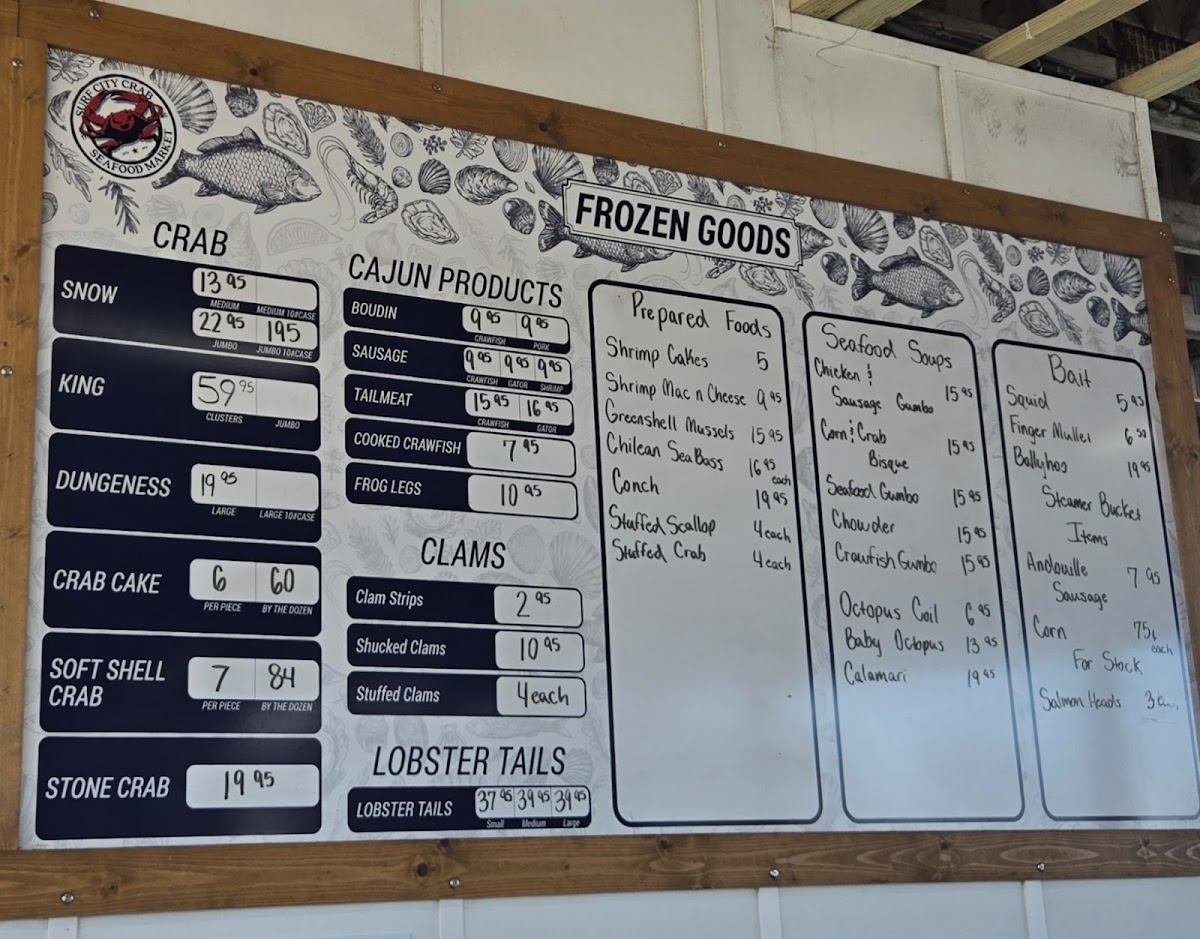 SURF CITY CRAB
SEAFOOD MARKET
FROZEN GOODS
CRAB
SNOW
13.95
MEDIUM MEDIUM 10#CASE
22.95 195
JUMBO JUMBO 10#CASE
KING
59.95
CLUSTERS JUMBO
DUNGENESS
19.95
LARGE LARGE 10#CASE
CRAB CAKE
6 60
PER PIECE BY THE DOZEN
SOFT SHELL
CRAB
7 84
PER PIECE BY THE DOZEN
STONE CRAB 19.95
CAJUN PRODUCTS
BOUDIN 9.95 9.95
CRAWFISH PORK
SAUSAGE 9.95 9.95 9.95
CRAWFISH GATOR SHRIMP
TAILMEAT 15.95 16.95
CRAWFISH GATOR
COOKED CRAWFISH 7.95
FROG LEGS 10.95
CLAMS
Clam Strips 2.95
Shucked Clams 10.95
Stuffed Clams 4 each
LOBSTER TAILS
LOBSTER TAILS 37.95 39.95 39.95
Small Medium Large
Prepared Foods
Shrimp Cakes 5
Shrimp Mac n Cheese 9.95
Greenshell Mussels 15.95
Chilean Sea Bass 16.95
each
Conch 19.95
Stuffed Scallop 4 each
Stuffed Crab 4 each
Seafood Soups
Chicken &
Sausage Gumbo 15.95
Corn & Crab 15.95
Bisque
Seafood Gumbo 15.95
Chowder 15.95
Crawfish Gumbo 15.95
Octopus Coil 6.95
Baby Octopus 13.95
Calamari 19.95
Bait
Squid 5.95
Finger Mullet 6.50
Ballyhoo 19.95
Steamer Bucket
Items
Andouille 7.95
Sausage
Corn 75¢
each
For Stock
Salmon Heads 3